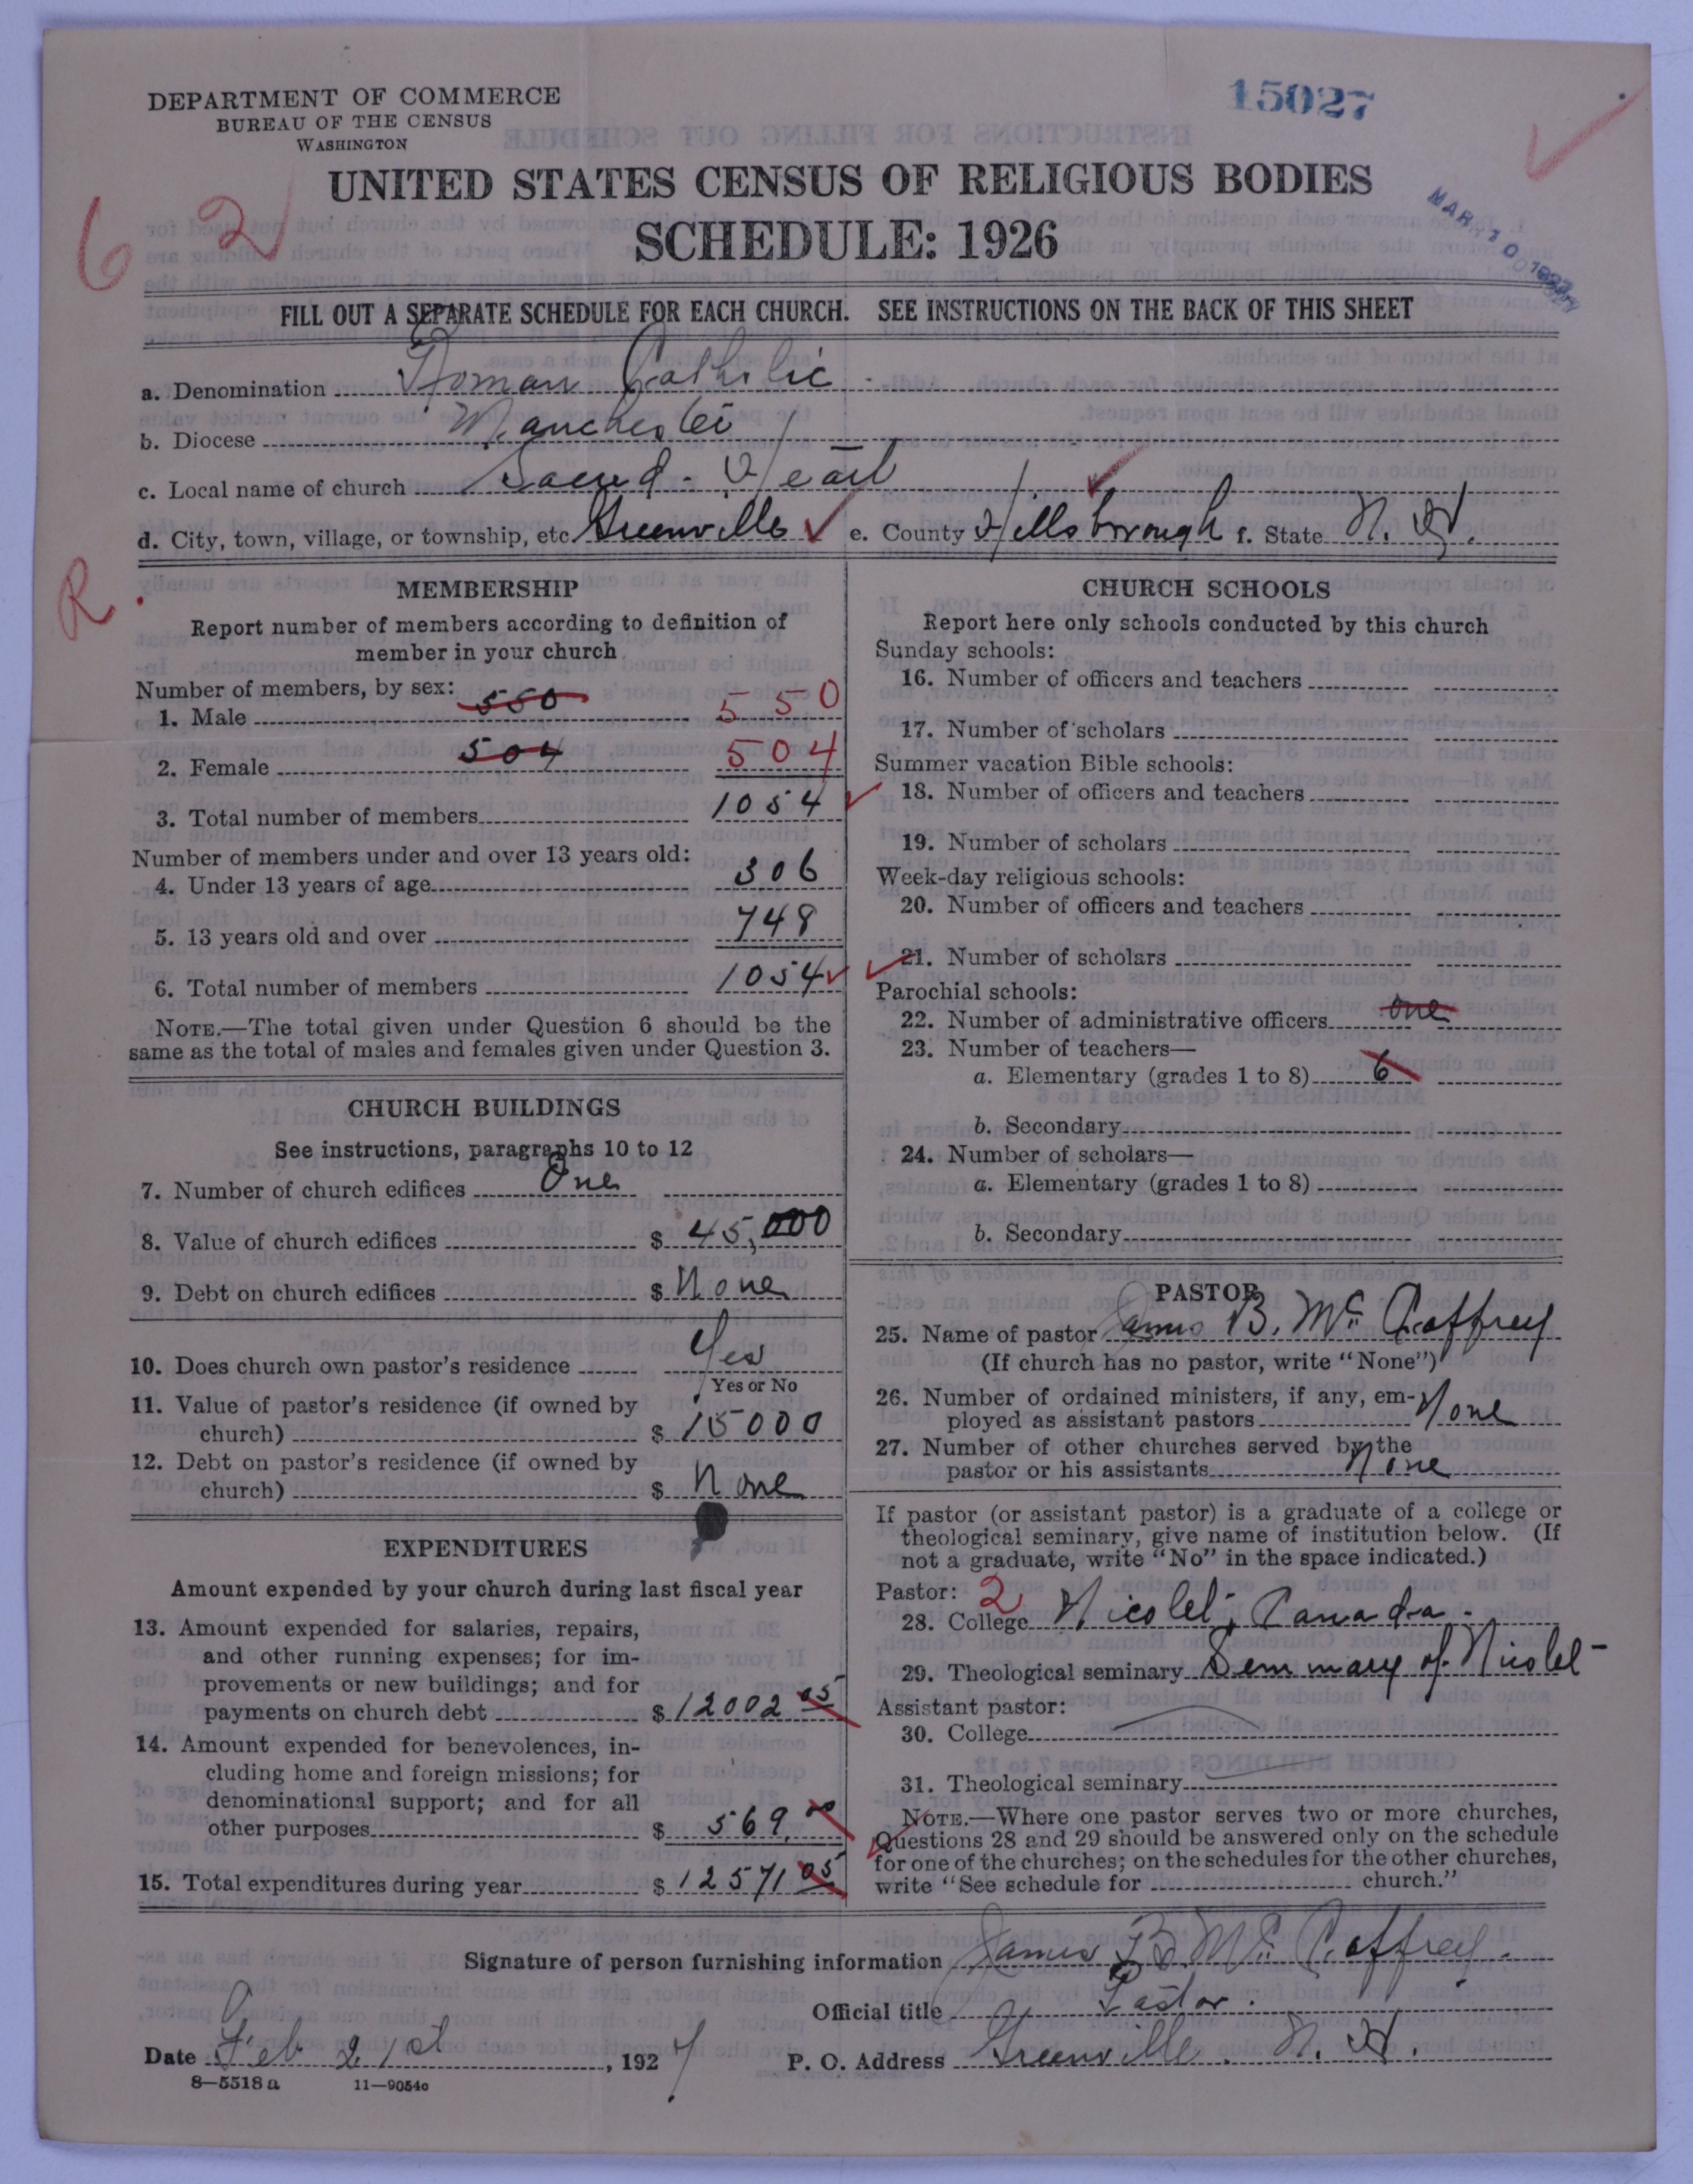 DEPARTMENT OF COMMERCE
BUREAU OF THE CENSUS
WASHINGTON
15027
UNITED STATES CENSUS OF RELIGIOUS BODIES
SCHEDULE: 1926
6 2
MAR 10 1927
FILL OUT A SEPARATE SCHEDULE FOR EACH CHURCH. SEE INSTRUCTIONS ON THE BACK OF THIS SHEET
a. Denomination Roman Catholic
b. Diocese Manchester
c. Local name of church Sacred-Heart
d. City, town, village, or township, etc. Greenville e. County Hillsborough f. State N. H.
R.
MEMBERSHIP
Report number of members according to definition of
member in your church
Number of members, by sex:
1. Male 550 550
2. Female 504 504
3. Total number of members 1054
Number of members under and over 13 years old:
4. Under 13 years of age 306
5. 13 years old and over 748
6. Total number of members 1054
NOTE.—The total given under Question 6 should be the
same as the total of males and females given under Question 3.
CHURCH BUILDINGS
See instructions, paragraphs 10 to 12
7. Number of church edifices One
8. Value of church edifices $ 45,000
9. Debt on church edifices $ None
10. Does church own pastor's residence Yes
Yes or No
11. Value of pastor's residence (if owned by
church) $ 15000
12. Debt on pastor's residence (if owned by
church) $ None
EXPENDITURES
Amount expended by your church during last fiscal year
13. Amount expended for salaries, repairs,
and other running expenses; for im-
provements or new buildings; and for
payments on church debt $ 12002 05
14. Amount expended for benevolences, in-
cluding home and foreign missions; for
denominational support; and for all
other purposes $ 569. 00
15. Total expenditures during year $ 12571 05
CHURCH SCHOOLS
Report here only schools conducted by this church
Sunday schools:
16. Number of officers and teachers
17. Number of scholars
Summer vacation Bible schools:
18. Number of officers and teachers
19. Number of scholars
Week-day religious schools:
20. Number of officers and teachers
21. Number of scholars
Parochial schools:
22. Number of administrative officers one
23. Number of teachers—
a. Elementary (grades 1 to 8) 6
b. Secondary
24. Number of scholars—
a. Elementary (grades 1 to 8)
b. Secondary
PASTOR
25. Name of pastor James B. Mc Caffrey
(If church has no pastor, write "None")
26. Number of ordained ministers, if any, em-
ployed as assistant pastors None
27. Number of other churches served by the
pastor or his assistants None
If pastor (or assistant pastor) is a graduate of a college or
theological seminary, give name of institution below. (If
not a graduate, write "No" in the space indicated.)
Pastor: 2
28. College Nicolet, Canada.
29. Theological seminary Seminary of Nicolet
Assistant pastor:
30. College
31. Theological seminary
NOTE.—Where one pastor serves two or more churches,
Questions 28 and 29 should be answered only on the schedule
for one of the churches; on the schedules for the other churches,
write "See schedule for church."
Signature of person furnishing information James B. Mc Caffrey.
Official title Pastor.
Date Feb 21st, 1927 P. O. Address Greenville. N. H.
8—5518 a 11—9054c